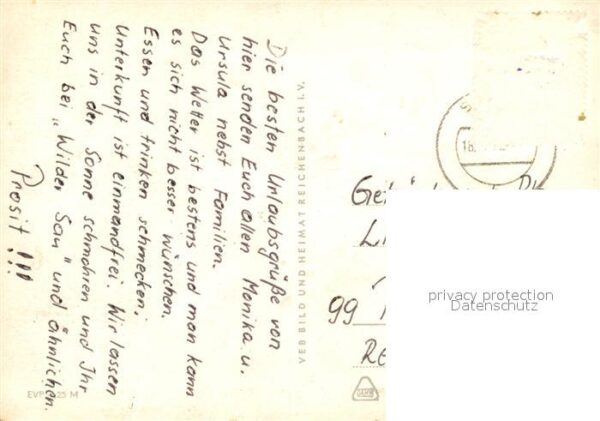 Die besten Urlaubsgrüße von
hier senden Euch allen Monika u.
Ursula nebst Familien.
Das Wetter ist bestens und man kann
es sich nicht besser wünschen.
Essen und trinken schmecken,
Unterkunft ist einwandfrei. Wir lassen
uns in der Sonne schmohren und Ihr
Euch bei „Wilder Sau" und ähnlichen.
Prosit !!!
VEB BILD UND HEIMAT REICHENBACH I.V.
99
privacy protection
Datenschutz
25 M